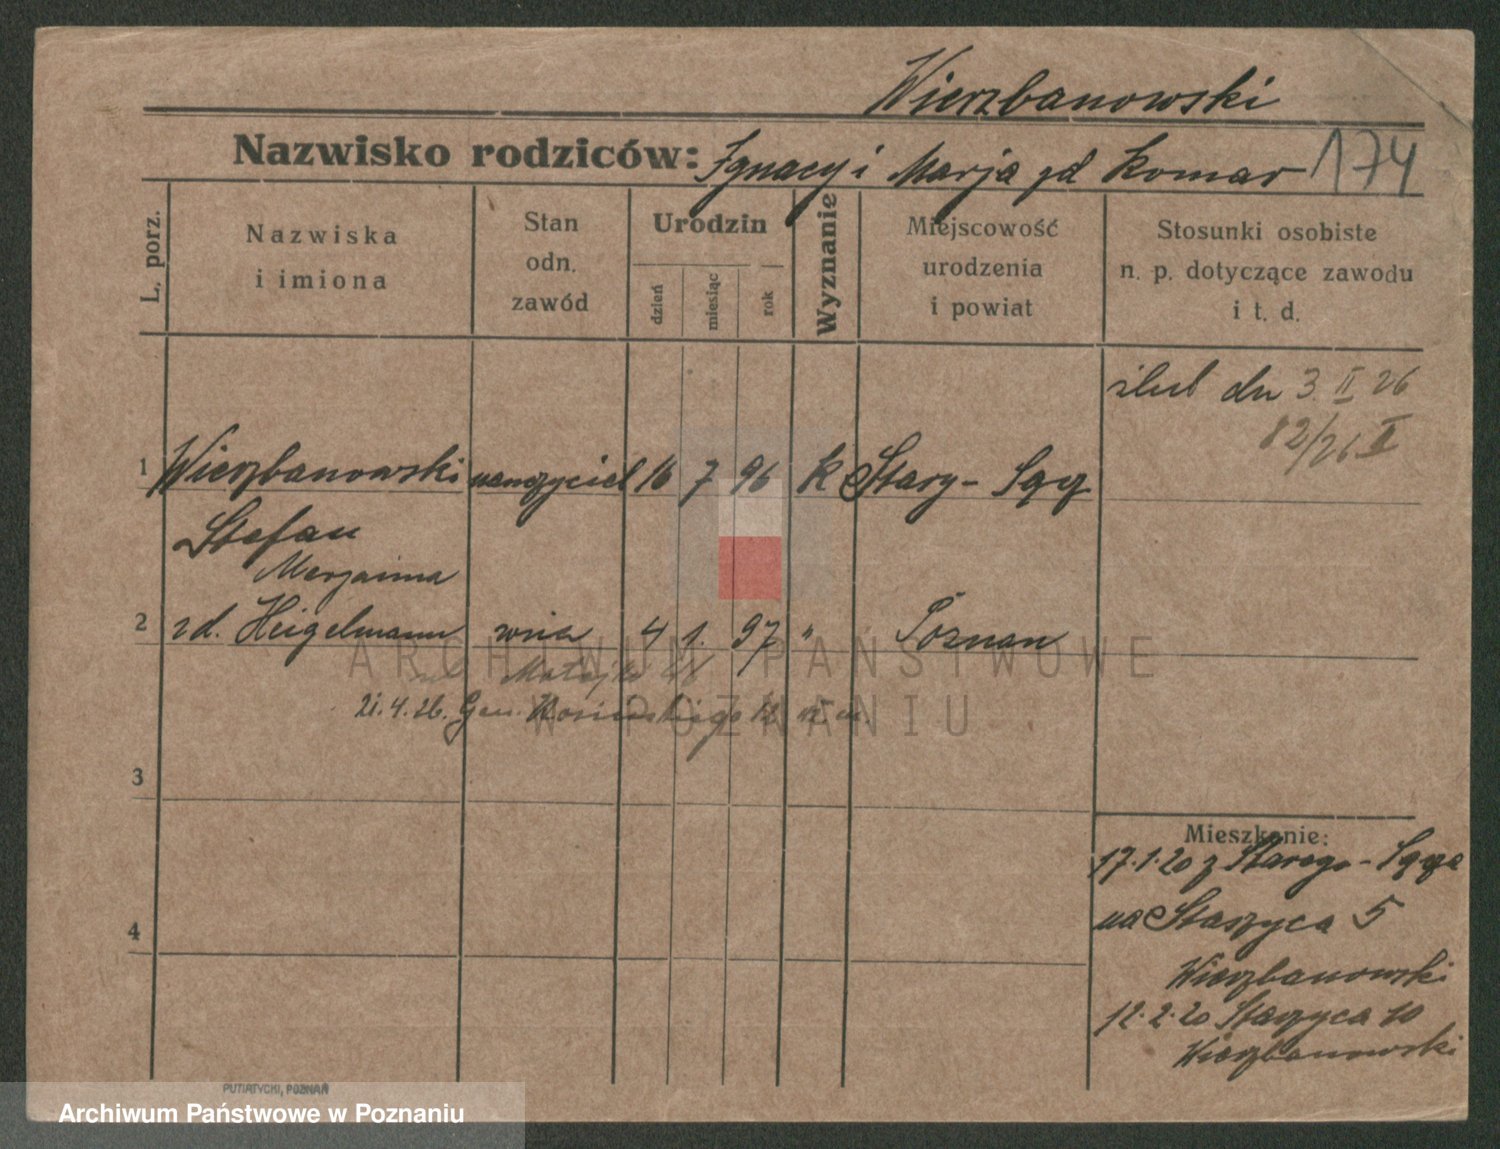 Wierzbanowski
Nazwisko rodziców: Ignacy i Marja zd Komar 174
L. porz.
Nazwiska
i imiona
Stan
odn.
zawód
Urodzin
dzień
miesiąc
rok
Wyznanie
Miejscowość
urodzenia
i powiat
Stosunki osobiste
n. p. dotyczące zawodu
i t. d.
ślub dn 3 II 26
82/26 II
1 Wierzbanowski nauczyciel 16 7 96 k Stary - Sącz
Stefan
Marjanna
2 zd. Heigelmann 4 1. 97 " Poznan
Matejki
21.4.26. Gen. Kosinskiego
3
4
Mieszkanie:
17.1.20 z Starego - Sącza
na Staszyca 5
Wierzbanowski
12.2.20 Staszyca 10
Wierzbanowski
ARCHIWUM PAŃSTWOWE
W POZNANIU
PUTIATYCKI, POZNAŃ
Archiwum Państwowe w Poznaniu